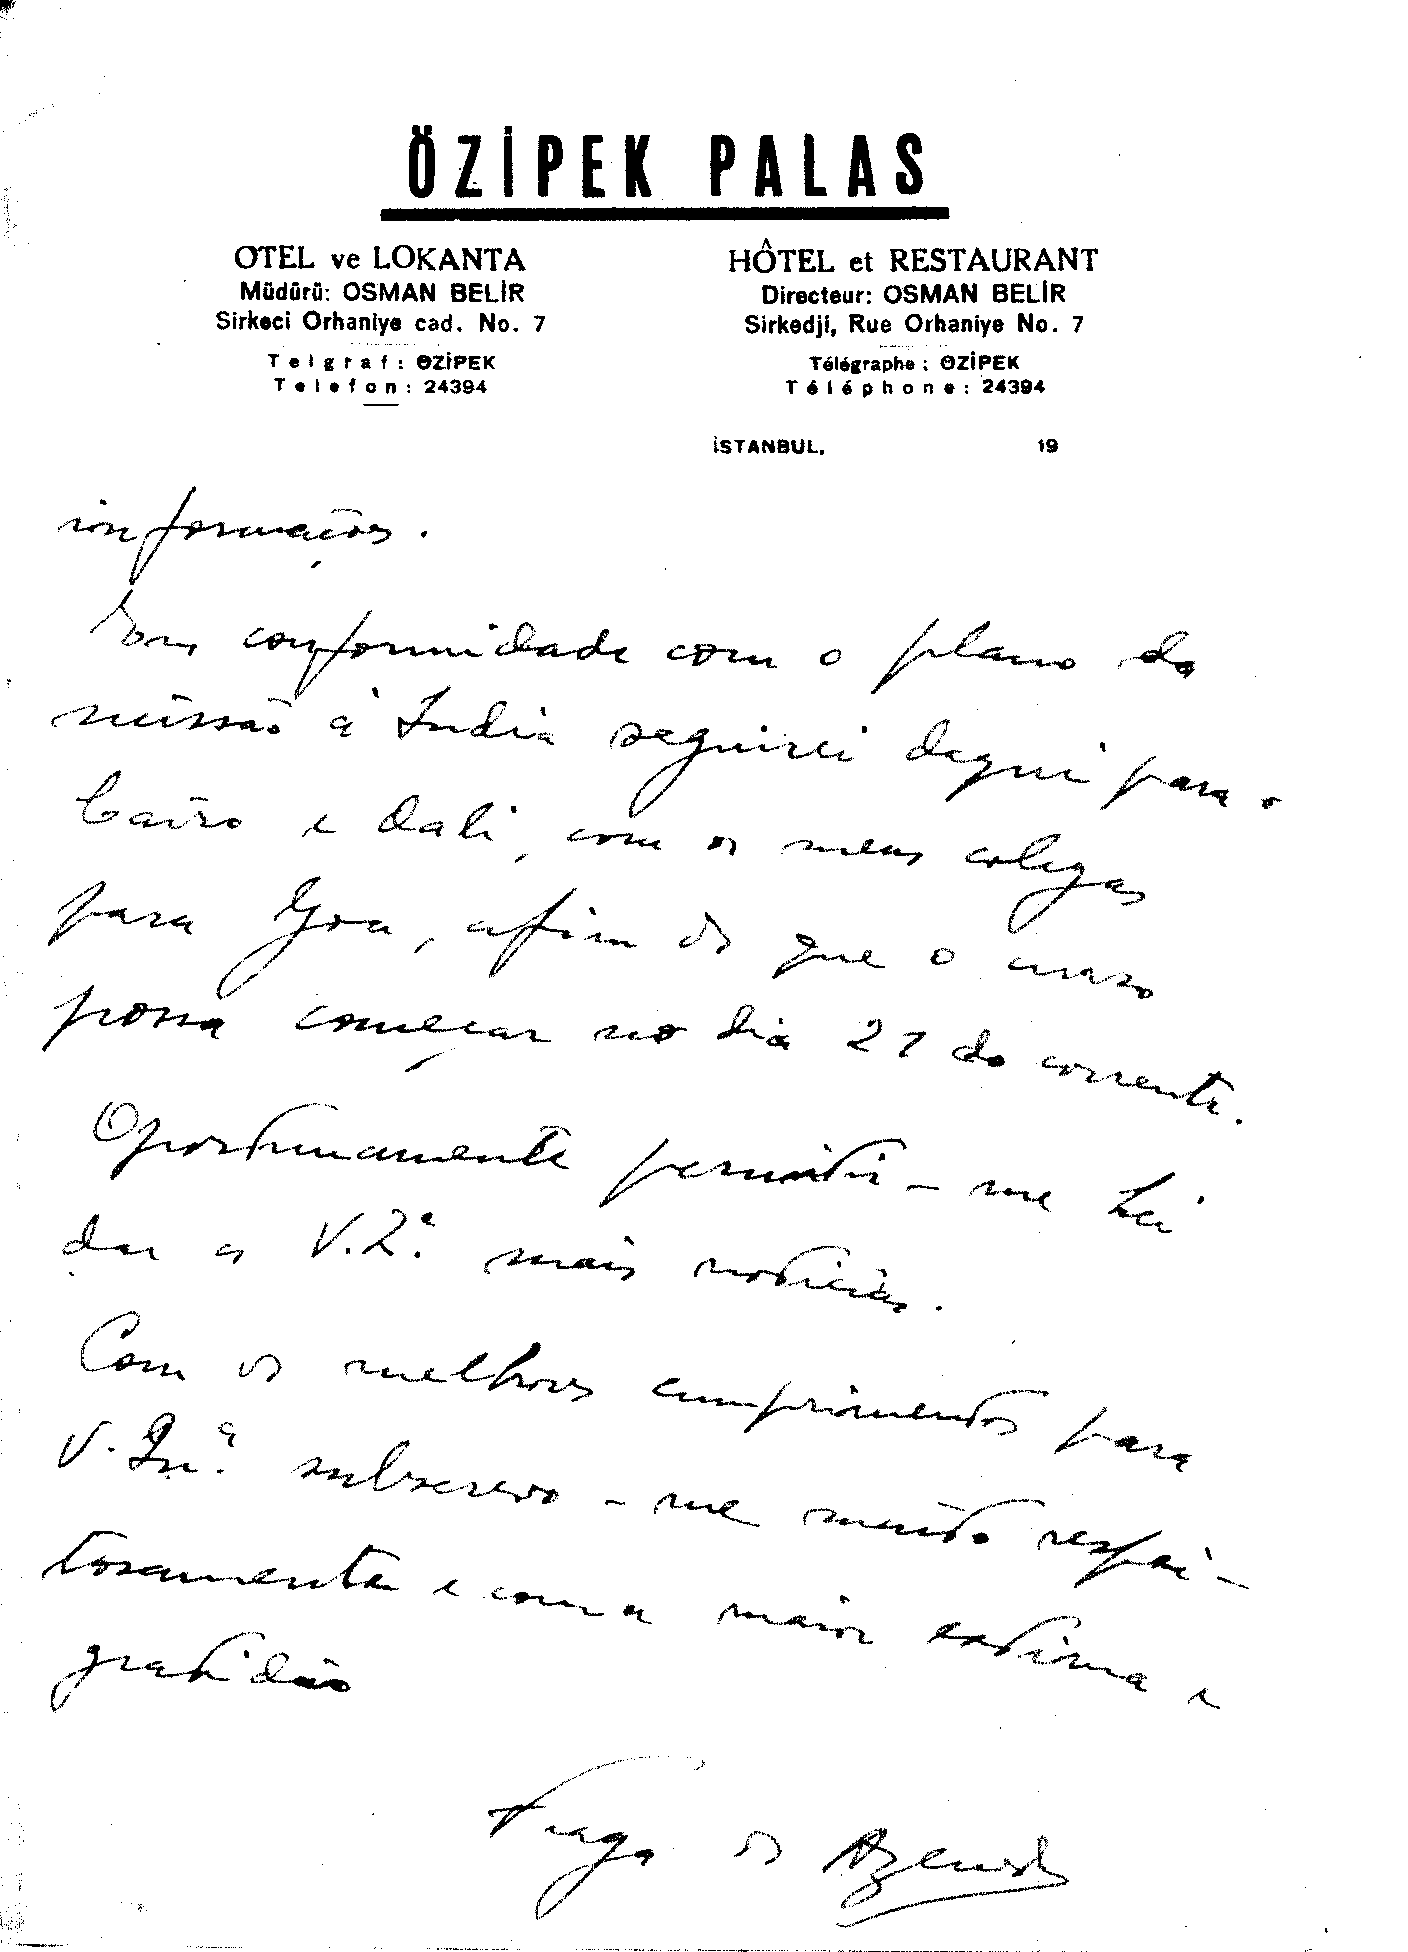 ÖZİPEK PALAS
OTEL ve LOKANTA
Müdürü: OSMAN BELİR
Sirkeci Orhaniye cad. No. 7
Telgraf: ÖZİPEK
Telefon: 24394
HÔTEL et RESTAURANT
Directeur: OSMAN BELİR
Sirkedji, Rue Orhaniye No. 7
Télégraphe: ÖZİPEK
Téléphone: 24394
İSTANBUL, 19
informações.
Em conformidade com o plano da
missão à India seguirei daqui para o
Cairo e dali, com os meus colegas
para Goa, afim de que o curso
possa começar no dia 21 do corrente.
Oportunamente permitir-me hei
dar a V. Eª. mais noticias.
Com os melhores cumprimentos para
V. Exª. subscrevo-me muito respei-
tosamente e com a maior estima e
gratidão
Fraga de Azevedo